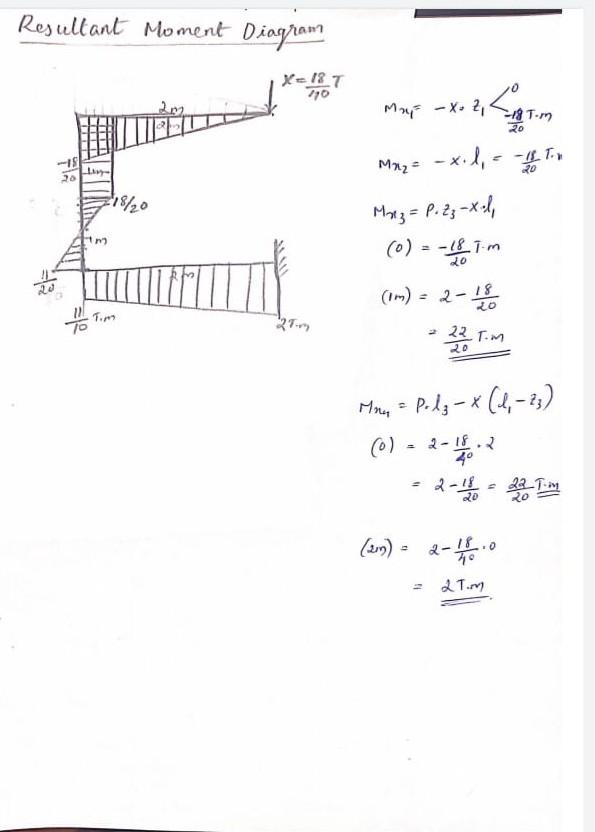 Resultant Moment Diagram
X = 18/40 T
2m
2m
-18/20
1m
18/20
1m
11/20
2m
11/10 T.m
2T.m
Mx₁ = -X. Z₁ < 0
-18/20 T.m
Mx₂ = -X.l₁ = -18/20 T.
Mx₃ = P.Z₃ - X.l₁
(0) = -18/20 T.m
(1m) = 2 - 18/20
= 22/20 T.m
Mx₄ = P.l₃ - X (l₁ - Z₃)
(0) = 2 - 18/40 . 2
= 2 - 18/20 = 22/20 T.m
(2m) = 2 - 18/40 . 0
= 2T.m